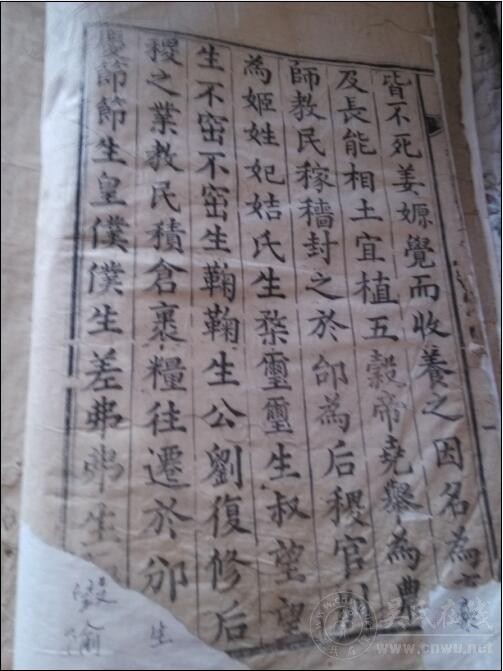 皆不死姜嫄覺而收養之因名為
及長能相土宜植五穀帝堯舉為農
師教民稼穡封之於邰為后稷官
為姬姓妃姞氏生棃璽璽生叔望望
生不窋不窋生鞠鞠生公劉復修后
稷之業教民積倉裹糧往遷於邠生
慶節節生皇僕僕生差弗弗生
毀隃
吴氏在线
www.cnwu.net